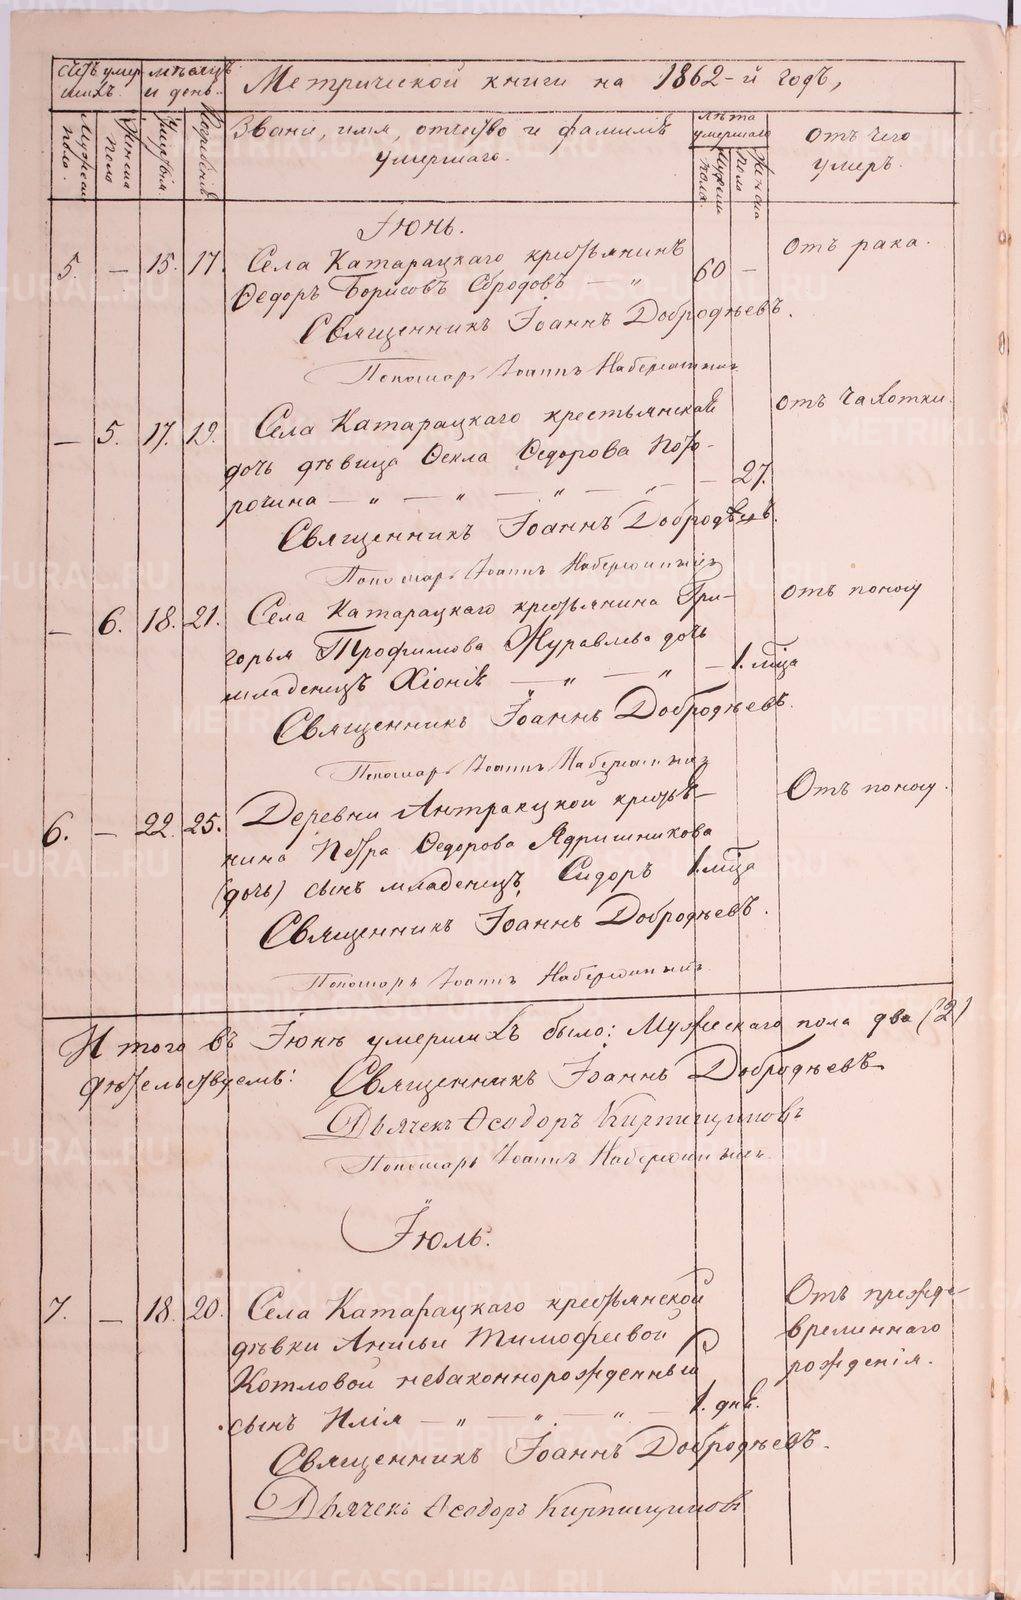 Счетъ умер- мѣсяцъ Метрической книги на 1862-й годъ,
шихъ. и день.
Мужеска пола. Женска пола Умертвія. Погребенія Званіе, имя, отчество и фамилія умершаго. Лѣта умершаго Мужеска пола. Женска пола Отъ чего умеръ.
Іюнь.
5. — 15. 17. Села Катарацкаго крестьянинъ 60 — Отъ рака.
Ѳедоръ Борисовъ Сбродовъ — "
Священникъ Іоаннъ Добродѣевъ.
Пономарь Іоаннъ
— 5. 17. 19. Села Катарацкаго крестьянская Отъ чахотки.
дочь дѣвица Ѳекла Ѳедорова Пото-
рочина — " — " — " — " — — 27.
Священникъ Іоаннъ Добродѣевъ.
Пономарь Іоаннъ
— 6. 18. 21. Села Катарацкаго крестьянина Гри- Отъ поносу
горья Трофимова Журавлева дочь
младенецъ Хіонія — " — " — 1. мѣца
Священникъ Іоаннъ Добродѣевъ.
Пономарь Іоаннъ
6. — 22. 25. Деревни крестья- Отъ поносу.
нина Петра Ѳедорова Ядришникова
(дочь) сынъ младенецъ, Сидоръ 1. мѣца
Священникъ Іоаннъ Добродѣевъ.
Пономарь Іоаннъ
Итого въ Іюнѣ умершихъ было: Мужескаго пола два (2)
Священникъ Іоаннъ Добродѣевъ
Дьячекъ Ѳеодоръ Кирпищиковъ
Пономарь Іоаннъ
Іюль.
7. — 18. 20. Села Катарацкаго крестьянской Отъ прежде-
дѣвки Анисьи Тимофеевой временнаго
Котловой незаконнорожденный рожденія.
сынъ Илія — " — " — " — 1. дня.
Священникъ Іоаннъ Добродѣевъ.
Дьячекъ Ѳеодоръ Кирпищиковъ
METRIKI.GASO-URAL.RU